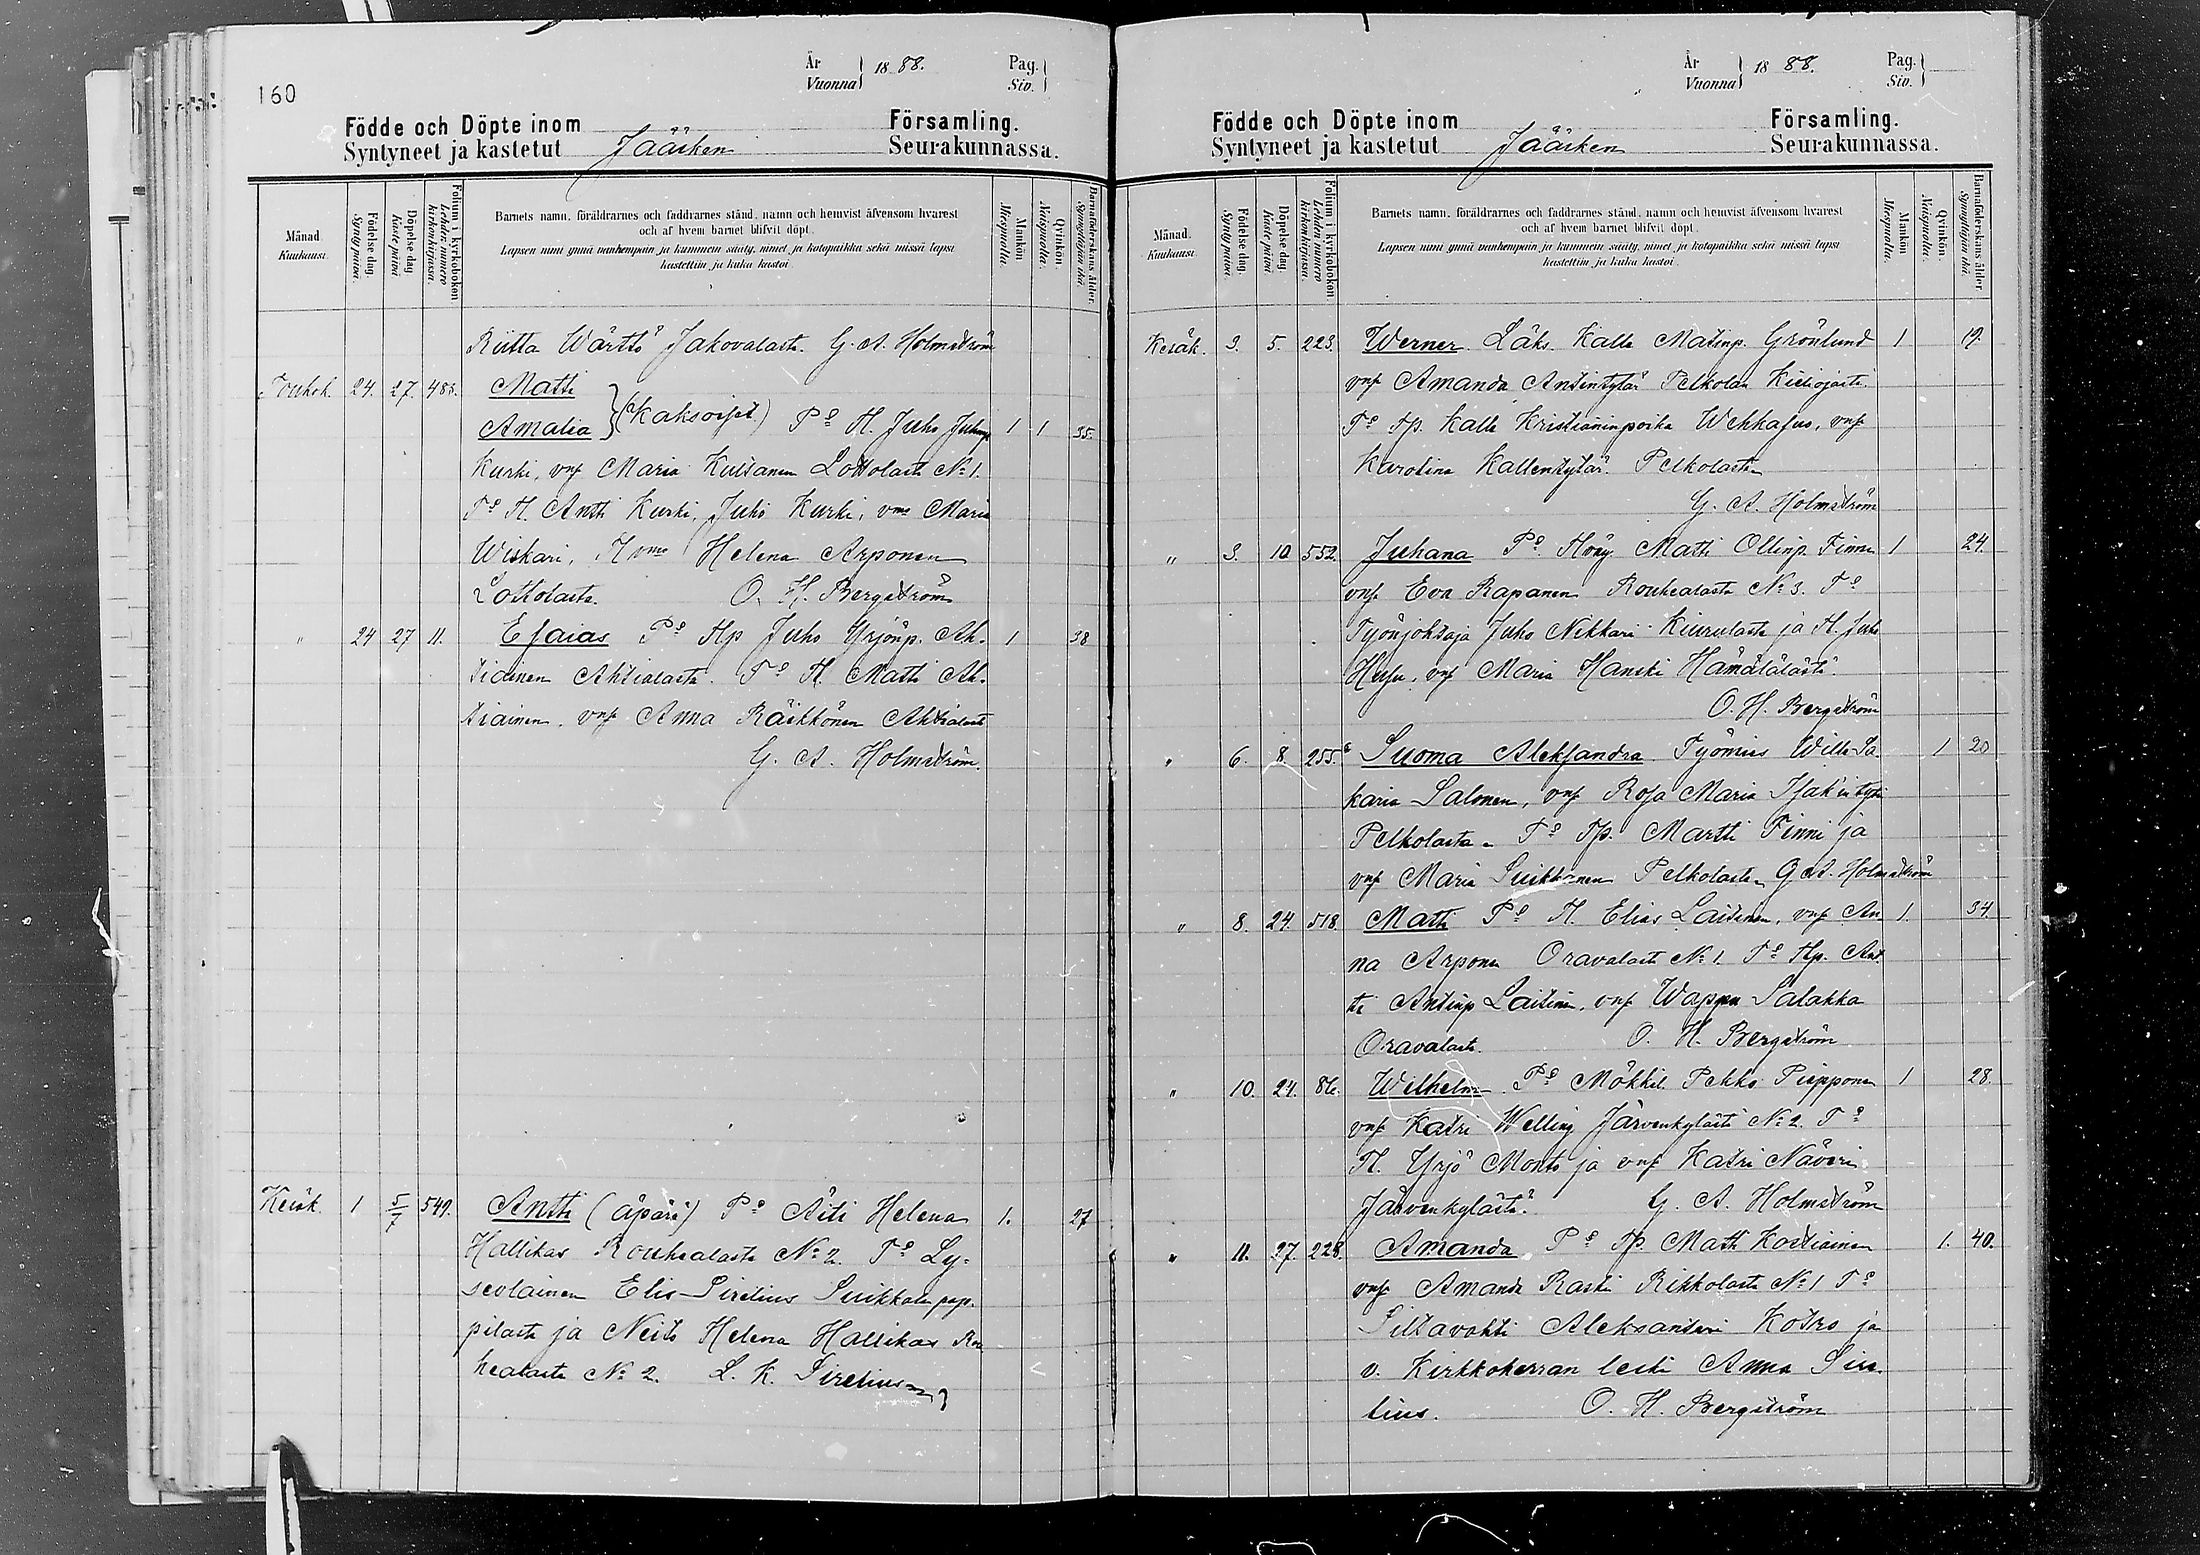 160
År
Vuonna 1888.
Pag.
Siv.
Födde och Döpte inom
Syntyneet ja kastetut Jääsken
Församling.
Seurakunnassa.
Månad.
Kuukausi.
Födelse dag.
Synty päivä.
Döpelse dag.
Kaste päivä.
Folium i kyrkoboken
Lehden numero
kirkonkirjassa.
Barnets namn, föräldrarnes och faddrarnes stånd, namn och hemvist äfvensom hvarest
och af hvem barnet blifvit döpt.
Lapsen nimi ynnä vanhempain ja kummein sääty, nimet ja kotopaikka sekä missä lapsi
kastettiin ja kuka kastoi.
Mankön
Miespuolia.
Qvinkön.
Naispuolia.
Barnaföderskans ålder.
Synnyttäjän ikä.
Riitta Wärttö Jakovalasta. G. A. Holmström
Toukok. 24. 27. 485. Matti
Amalia } (Kaksoiset) Po. H. Juho Juhonp 1 1 35.
Kurki, vmo Maria Kuisanen Lottolasta No 1.
To H. Antti Kurki, Juho Kurki, vmo Maria
Wiskari, H vmo Helena Arponen
Lottolasta. O. H. Bergström
" 24 27 11. Esaias Po Hp Juho Yrjönp. Ah- 1 38
tiainen Ahtialasta. To H. Matti Ah-
tiainen, vmo Anna Räikkönen Ahtialasta
G. A. Holmström.
Kesäk. 1 5/7 549. Antti (äpärä) Po Äiti Helena 1. 27
Hallikas Rouhialasta No 2. To Ly-
seolainen Elis Sirelius Suikkalan pap-
pilasta ja Neito Helena Hallikas Rou
healasta No 2. L. K. Sirelius
År
Vuonna 1888.
Pag.
Siv.
Födde och Döpte inom
Syntyneet ja kastetut Jääsken
Församling.
Seurakunnassa.
Månad.
Kuukausi.
Födelse dag.
Synty päivä.
Döpelse dag.
Kaste päivä.
Folium i kyrkoboken
Lehden numero
kirkonkirjassa.
Barnets namn, föräldrarnes och faddrarnes stånd, namn och hemvist äfvensom hvarest
och af hvem barnet blifvit döpt.
Lapsen nimi ynnä vanhempain ja kummein sääty, nimet ja kotopaikka sekä missä lapsi
kastettiin ja kuka kastoi.
Mankön
Miespuolia.
Qvinkön.
Naispuolia.
Barnaföderskans ålder.
Synnyttäjän ikä.
Kesäk. 3. 5. 223. Werner Läks. Kalle Matinp. Grönlund 1 19.
vmo Amanda Antintytär Pelkolan
To Tp. Kalle Kristianinpoika Wehkasuo, vmo
Karolina Kallentytär Pelkolasta
G. A. Holmström
" 3. 10 552. Juhana Po. Matti Ollinp. Finne 1 24.
vmo Eva Rapanen Rouhealasta No 3. To
Työnjohtaja Juho Nikkari Kiurulasta ja H. Juho
vmo Maria Hanski Hämäläästä.
O. H. Bergström
" 6. 8. 255. Suoma Aleksandra Työmies Wille Sa- 1 20
karia Salonen, vmo Rosa Maria Isakintytär
Pelkolasta. To Tp. Martti Finni ja
vmo Maria Suikkanen Pelkolasta G. A. Holmström
" 8. 24. 518. Matti Po H. Elias Laitinen, vmo An- 1. 34.
na Arponen Oravalasta No 1. To Hp. Ant-
ti Antinp Laitinen, vmo Wappu Salakka
Oravalasta. O. H. Bergström
" 10. 24. 86. Wilhelm Po Mökkil. Pekko Piipponen 1 28.
vmo Katri Welling Järvenkylästä No 2. To
H. Yrjö Monto ja vmo Katri Näveri
Järvenkylästä. G. A. Holmström
" 11. 27. 228. Amanda Po Tp. Matti Kostiainen 1. 40.
vmo Amanda Raski Rikkolasta No 1 To
Siltavahti Aleksanteri Kotro ja
v. Kirkkoherran leski Anna Sire-
lius. O. H. Bergström